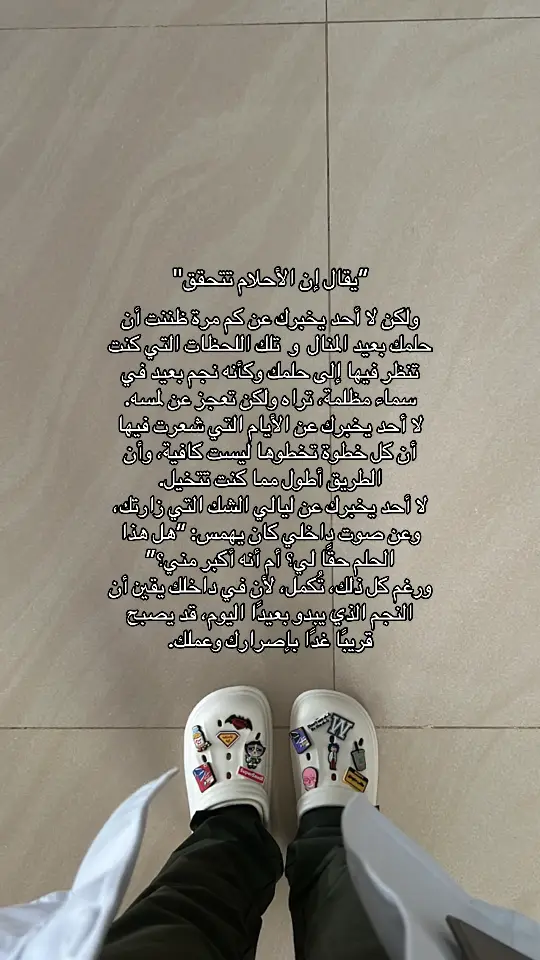 "يقال إن الأحلام تتحقق"
ولكن لا أحد يخبرك عن كم مرة ظننت أن
حلمك بعيد المنال و تلك اللحظات التي كنت
تنظر فيها إلى حلمك وكأنه نجم بعيد في
سماء مظلمة، تراه ولكن تعجز عن لمسه.
لا أحد يخبرك عن الأيام التي شعرت فيها
أن كل خطوة تخطوها ليست كافية، وأن
الطريق أطول مما كنت تتخيل.
لا أحد يخبرك عن ليالي الشك التي زارتك،
وعن صوت داخلي كان يهمس: "هل هذا
الحلم حقًا لي؟ أم أنه أكبر مني؟"
ورغم كل ذلك، تُكمل، لأن في داخلك يقين أن
النجم الذي يبدو بعيدًا اليوم، قد يصبح
قريبًا غدًا بإصرارك وعملك.
W